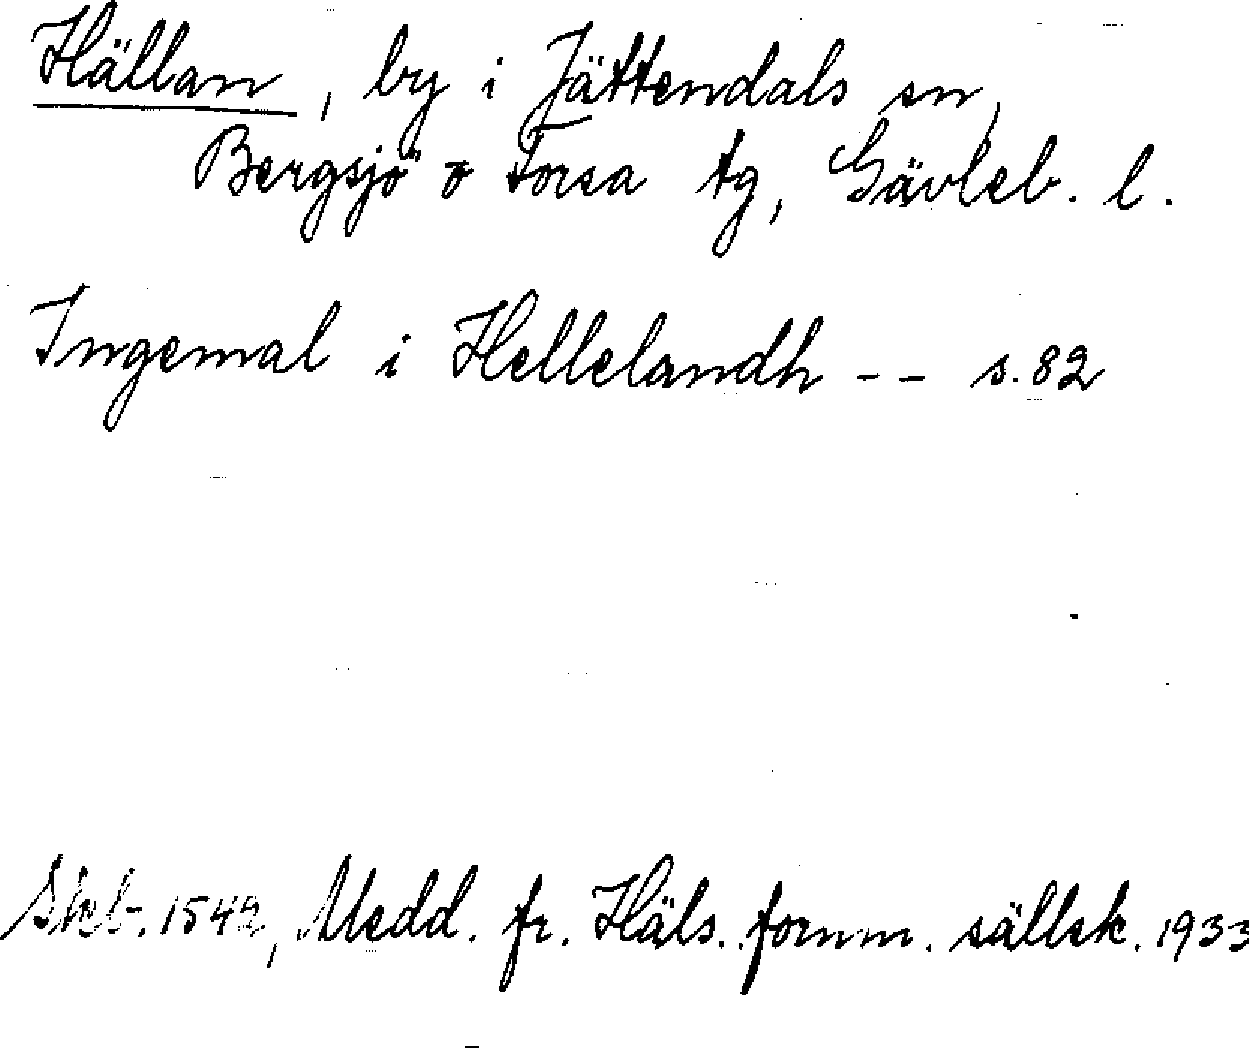 Hällan, by i Jättendals sn,
Bergsjö o Forsa tg, Gävleb. l.
Ingemal i Hellelandh -- s. 82
Skb. 1542, Medd. fr. Häls. fornm. sällsk. 1933